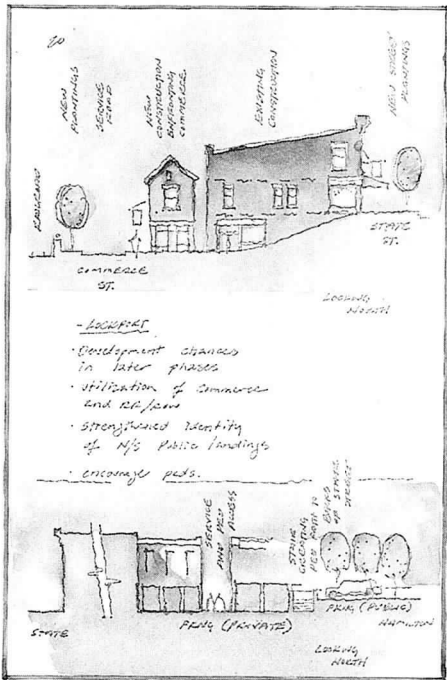 20
RAILROAD
NEW
PLANTINGS
SERVICE
ROAD
NEW
CONSTRUCTION
ENFRONTING
COMMERCE
EXISTING
CONSTRUCTION
NEW STREET
PLANTINGS
COMMERCE
ST.
STATE
ST.
LOOKING
NORTH
- LOCKPORT
· Development chances
in later phases
· utilization of Commerce
and RR/row
· strengthened identity
of N/S Public landings
· encourage peds.
SERVICE
AND PED
ACCESS
STAIR
CREATING
PED PATH TO
BACKS
OF STATE
STREET
STATE
PRKG (PRIVATE)
PRKG (PUBLIC)
HAMILTON
LOOKING
NORTH